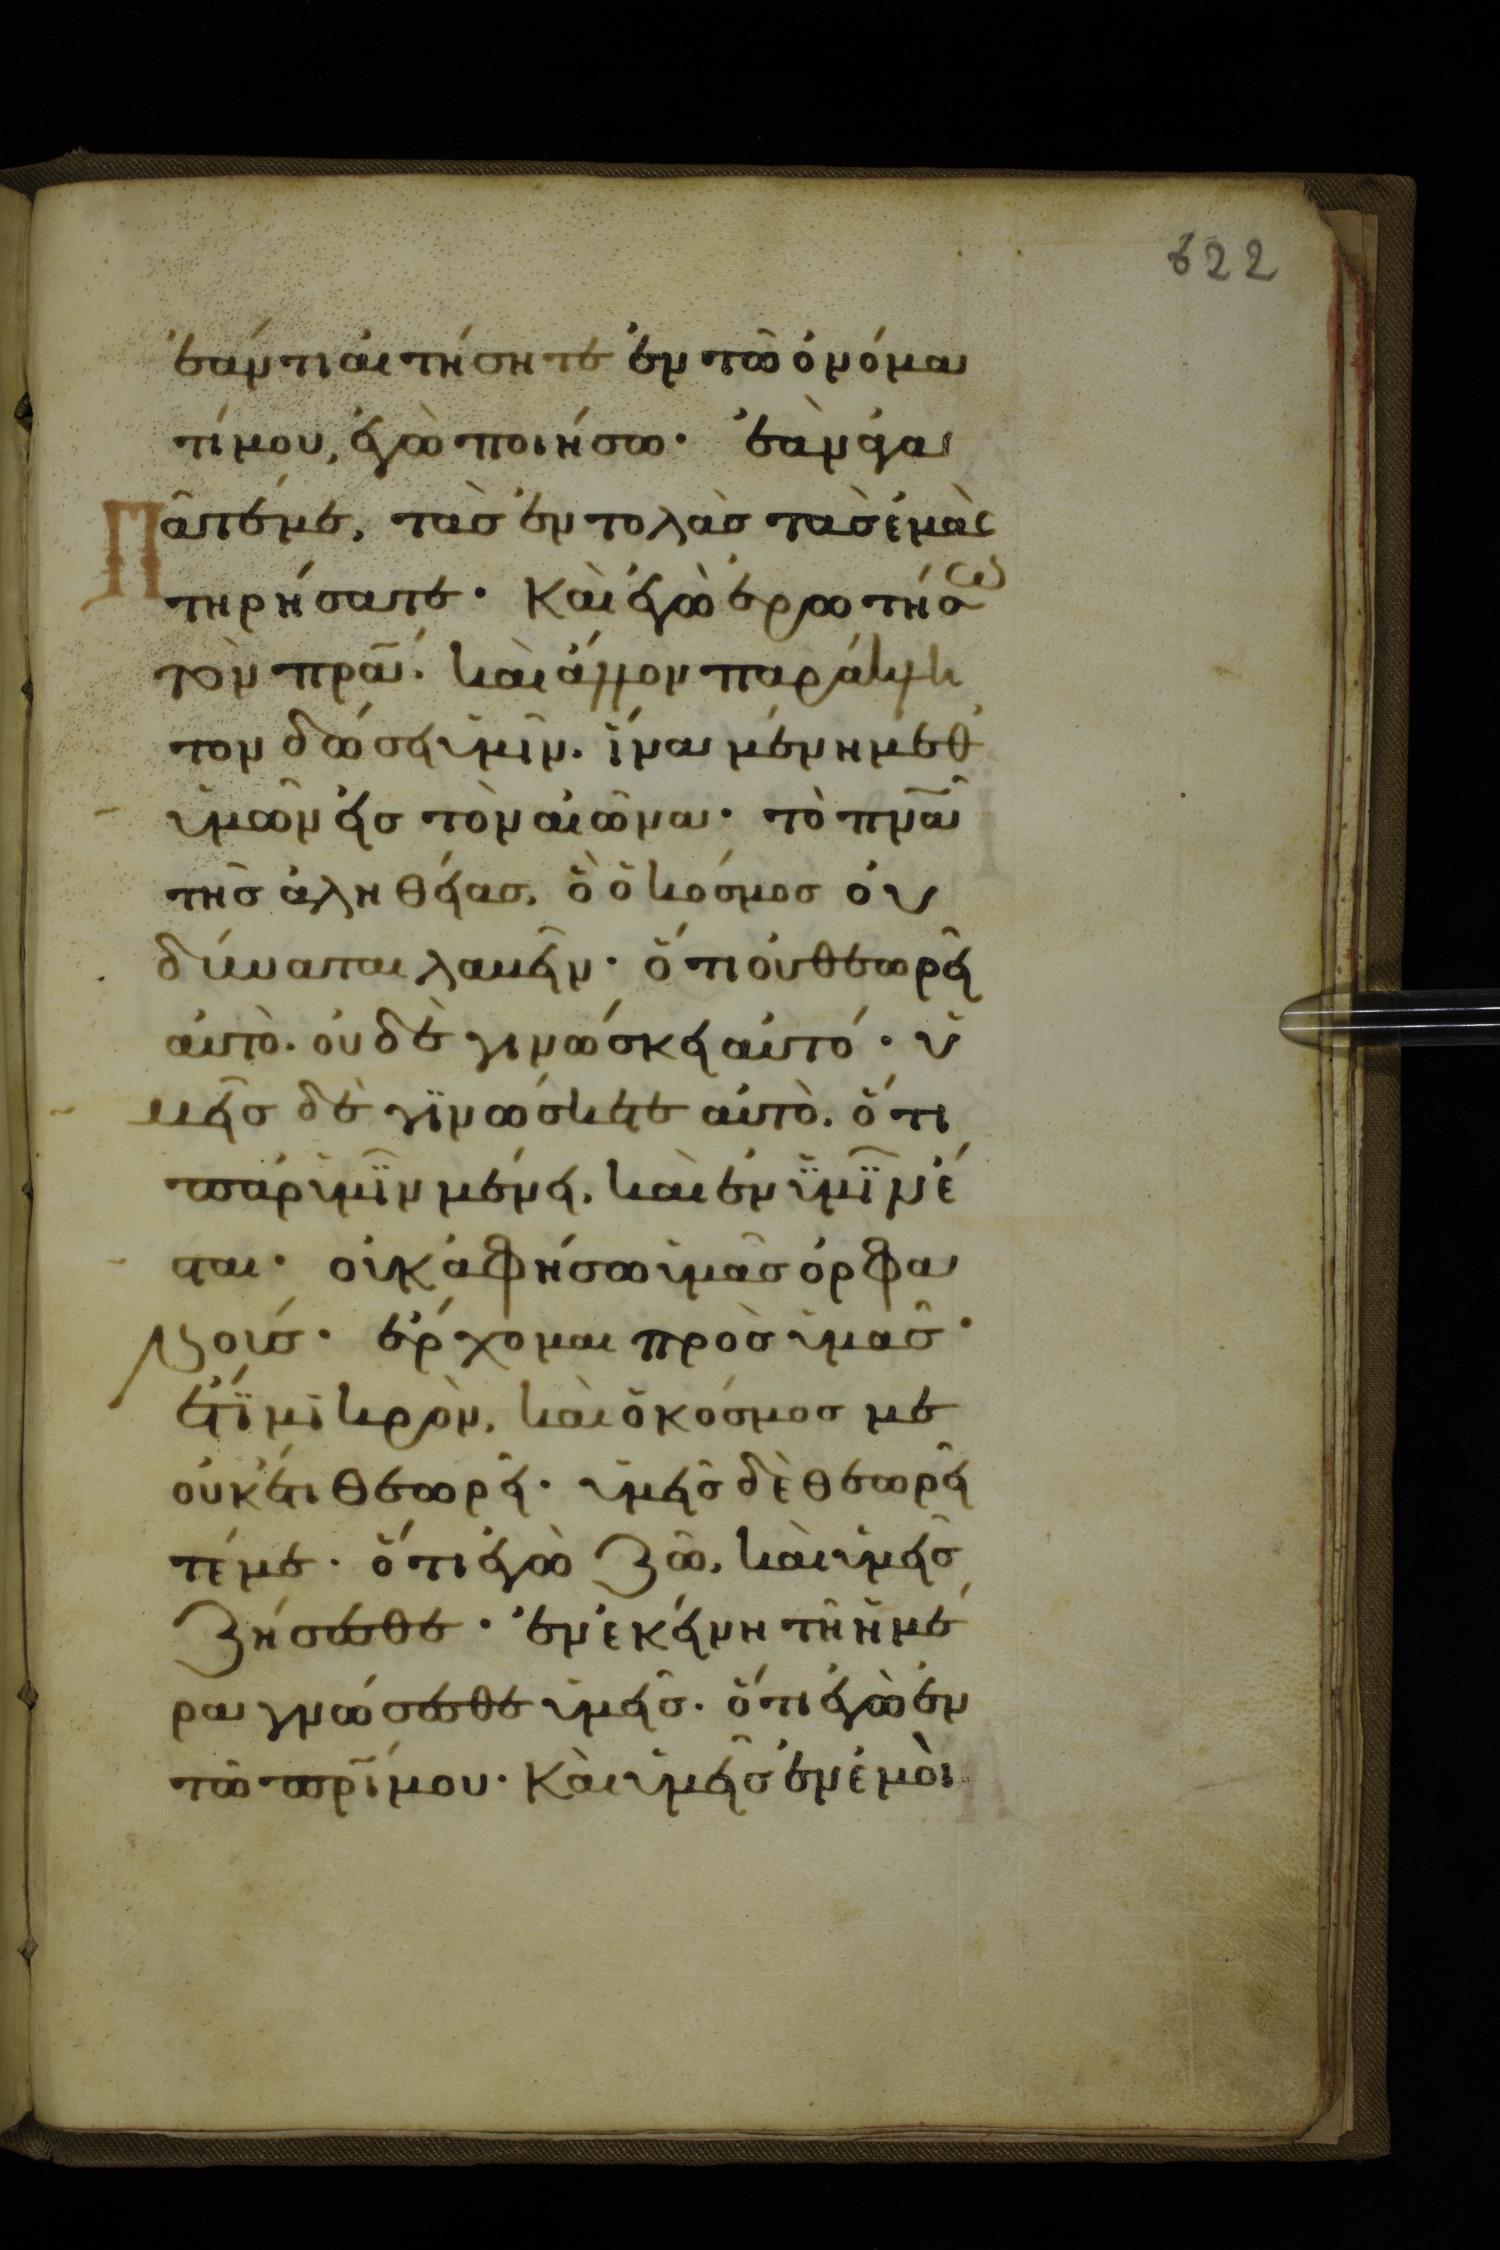 622
ἐάν τι αἰτήσητε ἐν τῶ ὀνόμα
τί μου, ἐγὼ ποιήσω· ἐὰν ἀγα
πᾶτέ με, τὰσ ἐντολὰσ τὰσ ἐμὰσ
τηρήσατε· Καὶ ἐγὼ ἐρωτήσω
τὸν πρ̅α· καὶ ἄλλον παράκλη
τον δώσει ὑμῖν. ἵνα μένη μεθ'
ὑμῶν εἰσ τὸν αἰῶνα· τὸ πν̅α
τῆσ ἀληθείασ, ὃ ὁ κόσμοσ οὐ
δύναται λαβεῖν· ὅτι οὐ θεωρεῖ
αὐτὸ. οὐδὲ γινώσκει αὐτό· ὑ
μεῖσ δὲ γϊνώσκετε αὐτὸ. ὅτι
παρ' ὑμῖν μένει, καὶ ἐν ὑμῖν ἔ
σται· οὐκ ἀφήσω ὑμᾶσ ὀρφα
νούσ· ἔρχομαι πρὸσ ὑμᾶσ·
ἔτϊ μικρὸν, καὶ ὁ κόσμοσ με
οὐκέτι θεωρεῖ· ὑμεῖσ δὲ θεωρεῖ
τέ με· ὅτι ἐγὼ ζῶ, καὶ ὑμεῖσ
ζήσεσθε· ἐν ἐκείνη τῆ ἡμέ
ρα γνώσεσθε ὑμεῖσ. ὅτι ἐγὼ ἐν
τῶ πρ̅ί μου· Καὶ ὑμεῖσ ἐν ἐμοὶ